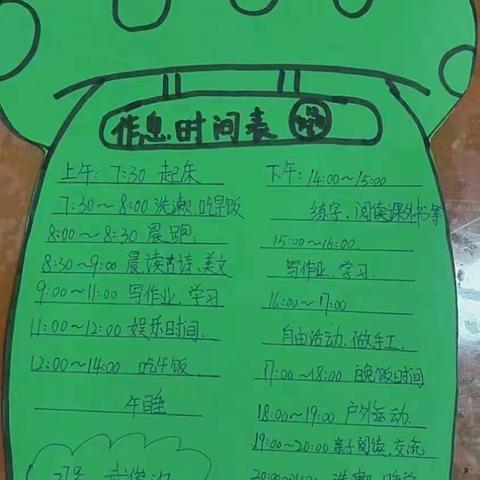 作息时间表
上午：7:30 起床
7:30～8:00 洗漱、吃早饭
8:00～8:30 晨跑
8:30～9:00 晨读古诗、美文
9:00～11:00 写作业、学习
11:00～12:00 娱乐时间.
12:00～14:00 吃午饭
午睡
下午：14:00～15:00
练字、阅读课外书等
15:00～16:00
写作业、学习.
16:00～17:00
自由活动、做手工.
17:00～18:00 晚饭时间
18:00～19:00 户外运动.
19:00～20:00 亲子阅读、交流